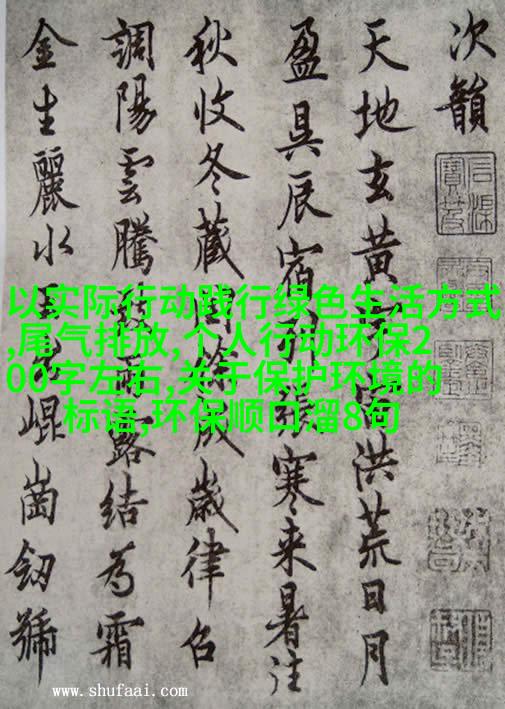 次韻
天地玄黄宇宙洪荒日月
盈昃辰宿列張寒来暑往
秋收冬藏閏餘成歲律召
調陽雲騰致雨露結為霜
金生麗水玉出崐崗劒號
以实际行动践行绿色生活方式
,尾气排放,个人行动环保2
00字左右,关于保护环境的
标语,环保顺口溜8句
www.shufaai.com